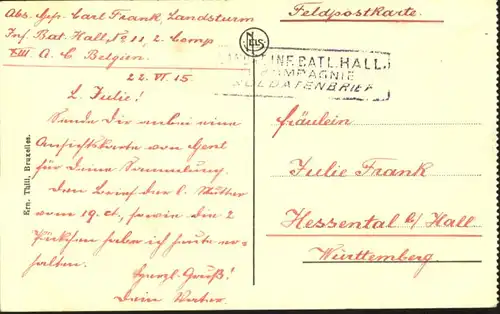 Abs. Gefr. Carl Frank, Landsturm
Inf. Bat. Hall, No 11, 2. Comp
XIII A. C Belgien.
22. VI. 15
L. Julie!
Sende Dir anbei eine
Ansichtskarte von Gent
für Deine Sammlung.
Den Brief der l. Mutter
vom 19. ct., sowie die 2
Päckchen habe ich heute er-
halten.
Herzl. Gruß!
Dein Vater.
Ern. Thill, Bruxelles.
NELS
Feldpostkarte.
INF. BATL. HALL.
KOMPAGNIE
SOLDATENBRIEF
Fräulein
Julie Frank
Hessental b/ Hall
Württemberg.